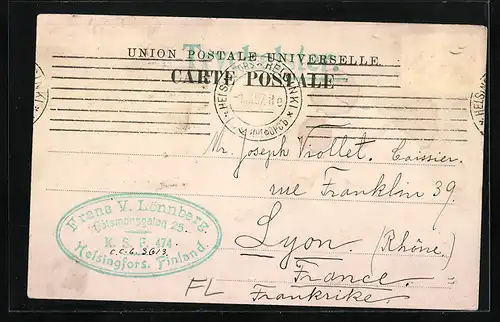 UNION POSTALE UNIVERSELLE.
CARTE POSTALE
HELSINGFORS · HELSINKI
Mr. Joseph Viollet. Caissier.
rue Franklin 39.
Lyon. (Rhône.)
France.
Frankrike.
Frans V. Lönnberg.
Båtsmansgatan 25.
K. S. F. 474
C.C.L. 3613
Helsingfors. Finland.
FL